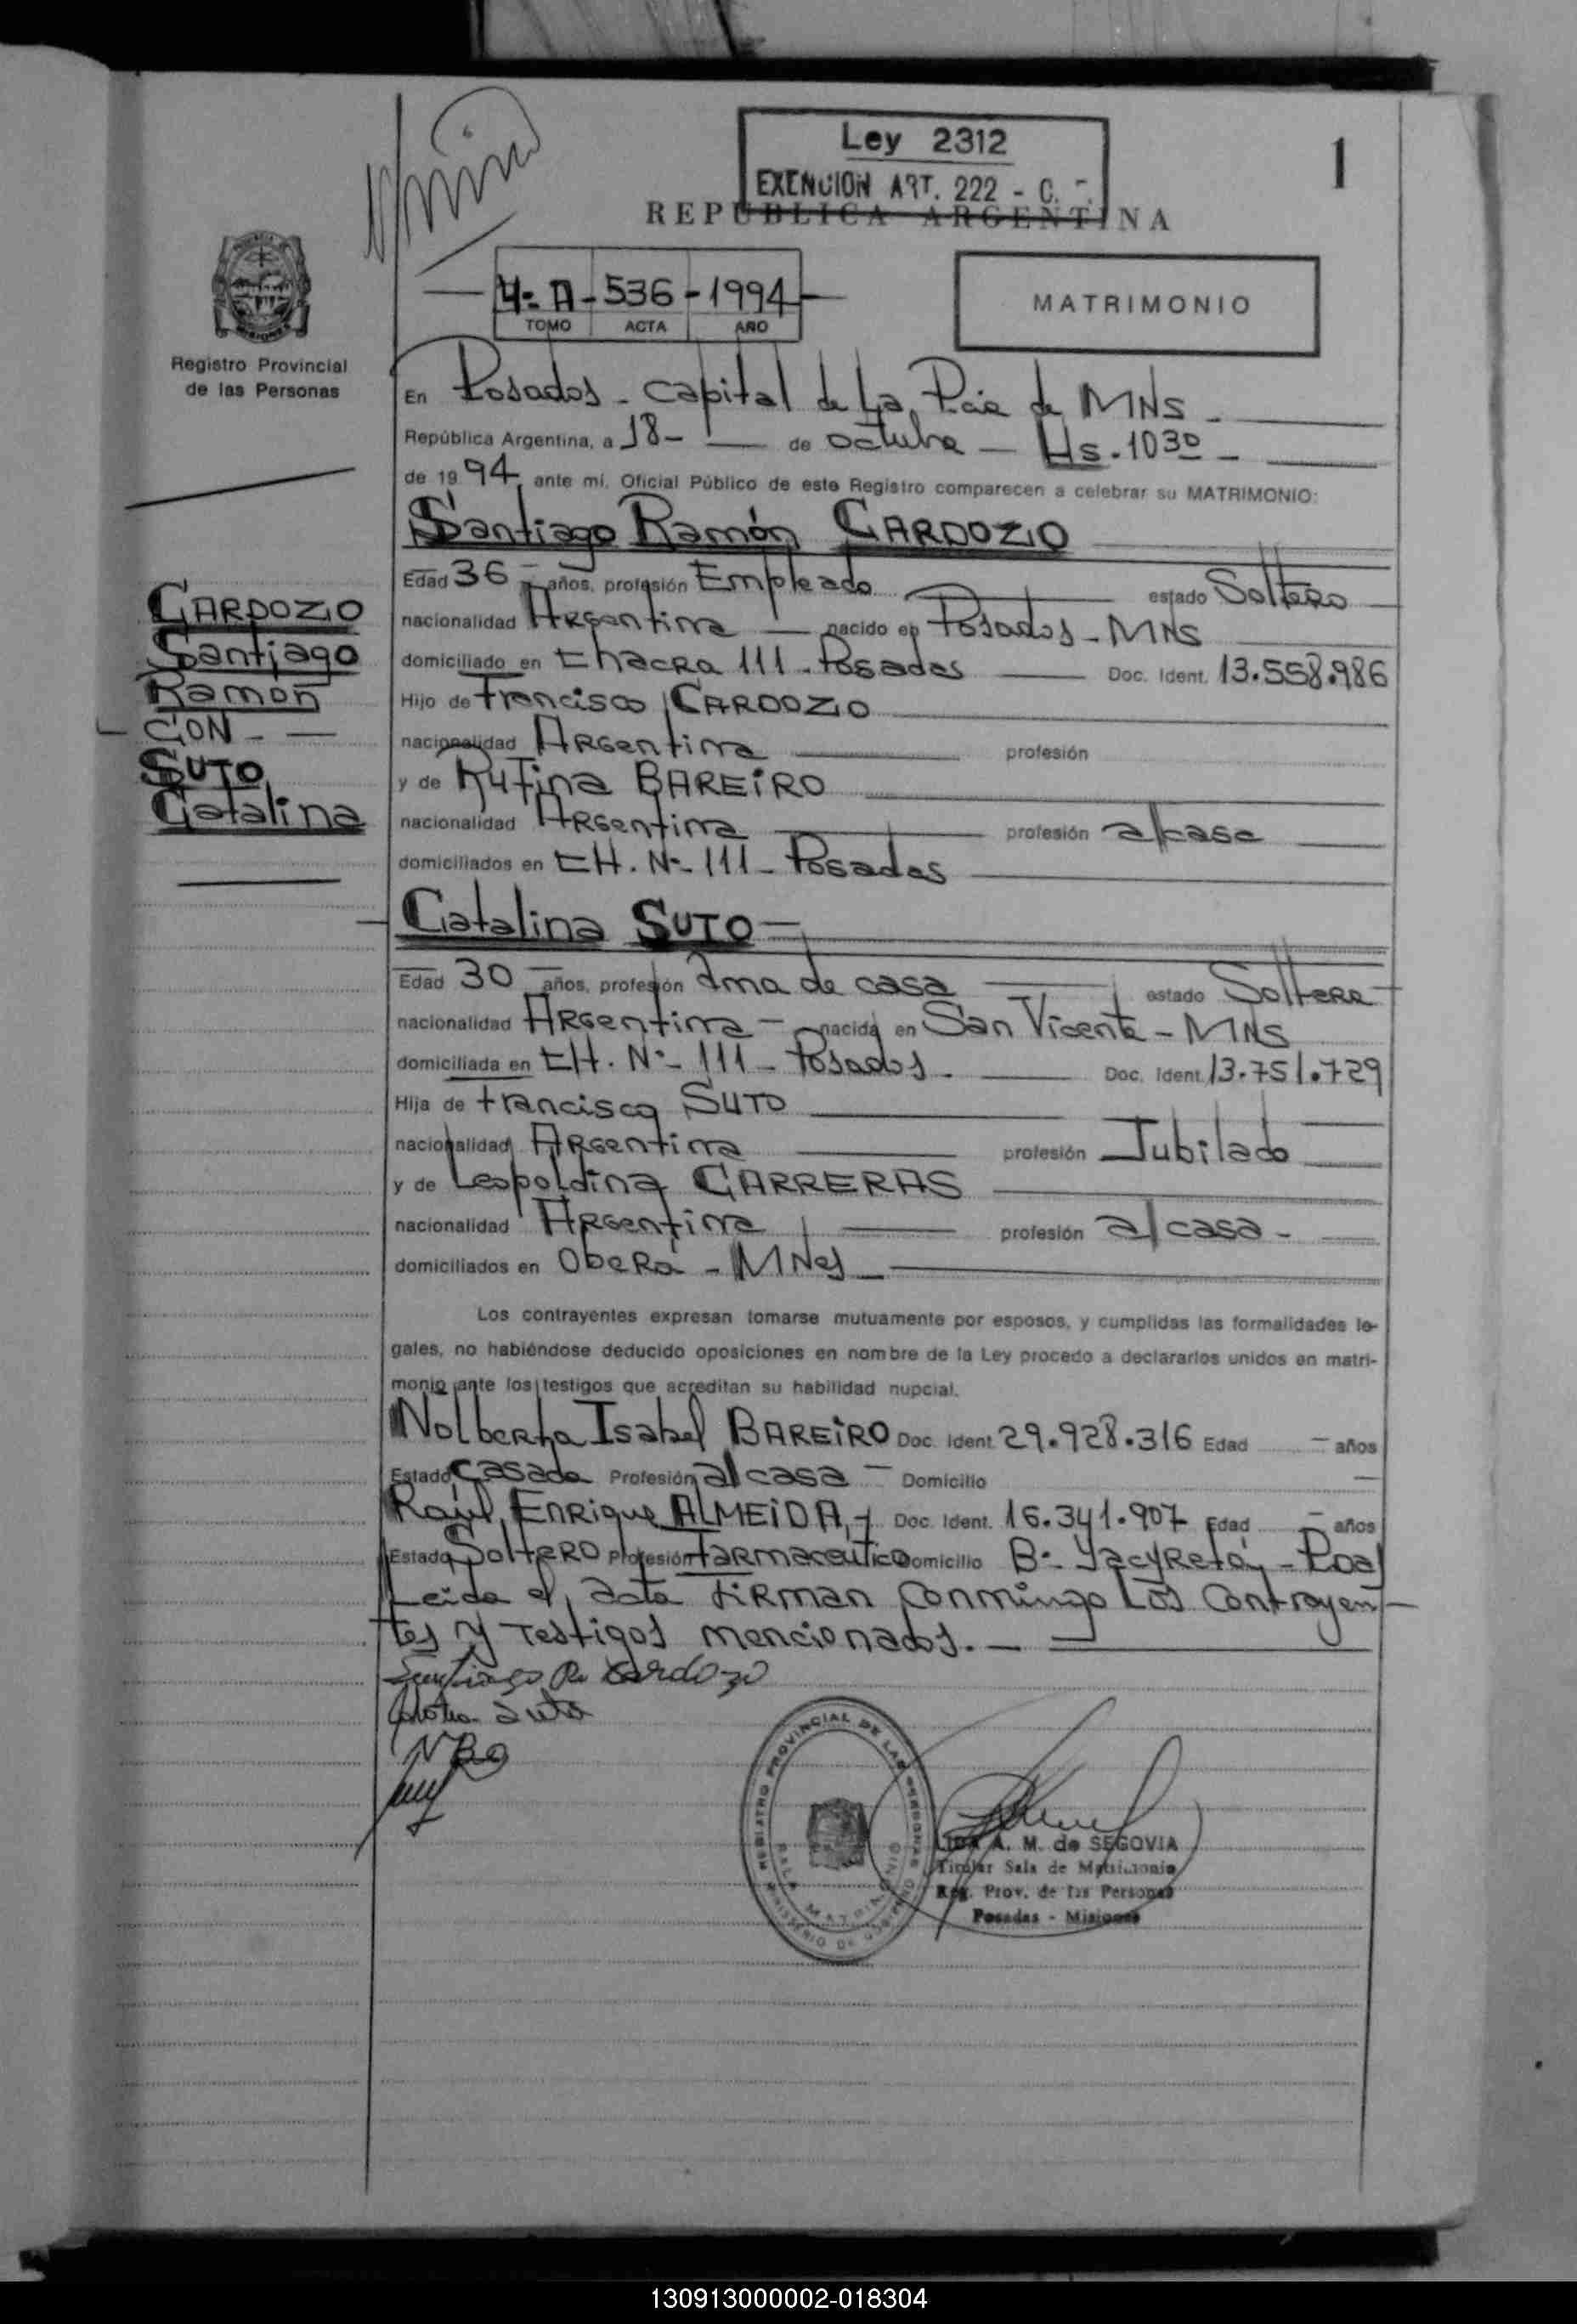 Ley 2312
EXENCION ART. 222 - C.
1
REPUBLICA ARGENTINA
4º A - 536 - 1994
TOMO ACTA AÑO
MATRIMONIO
Registro Provincial
de las Personas
En Posadas - Capital de La Pcia de MNS -
República Argentina, a 18 - de octubre - Hs. 10 30 -
de 1994, ante mí, Oficial Público de este Registro comparecen a celebrar su MATRIMONIO:
Santiago Ramón CARDOZO
Edad 36 - años, profesión Empleado estado Soltero
nacionalidad Argentina nacido en Posadas - MNS
domiciliado en Chacra 111 - Posadas Doc. Ident. 13.558.986
Hijo de Francisco CARDOZO
nacionalidad Argentina profesión
y de Rufina BAREIRO
nacionalidad Argentina profesión a/casa
domiciliados en CH. Nº 111 - Posadas
CARDOZO
Santiago
Ramon
CON -
SUTO
Catalina
Catalina SUTO
Edad 30 años, profesión Ama de casa estado Soltera
nacionalidad Argentina - nacida en San Vicente - MNS
domiciliada en CH. Nº 111 - Posadas - Doc. Ident. 13.751.729
Hija de Francisco SUTO
nacionalidad Argentina profesión Jubilado
y de Leopoldina CARRERAS
nacionalidad Argentina profesión a/casa -
domiciliados en Oberá - MNes
Los contrayentes expresan tomarse mutuamente por esposos, y cumplidas las formalidades le-
gales, no habiéndose deducido oposiciones en nombre de la Ley procedo a declararlos unidos en matri-
monio ante los testigos que acreditan su habilidad nupcial.
Nolberta Isabel BAREIRO Doc. Ident. 29.928.316 Edad - años
Estado Casada Profesión a/casa - Domicilio
Raúl Enrique ALMEIDA, - Doc. Ident. 16.341.907 Edad - años
Estado Soltero Profesión Farmaceutico Domicilio Bº Yacyretá - Pdas
Leida el acta firman conmingo Los Contrayen-
tes y Testigos mencionados. -
Santiago R. Cardozo
Suto
REGISTRO PROVINCIAL DE LAS PERSONAS
SALA MATRIMONIO
MINISTERIO DE GOBIERNO
A. M. de SEGOVIA
Titular Sala de Matrimonio
Reg. Prov. de las Personas
Posadas - Misiones
130913000002-018304